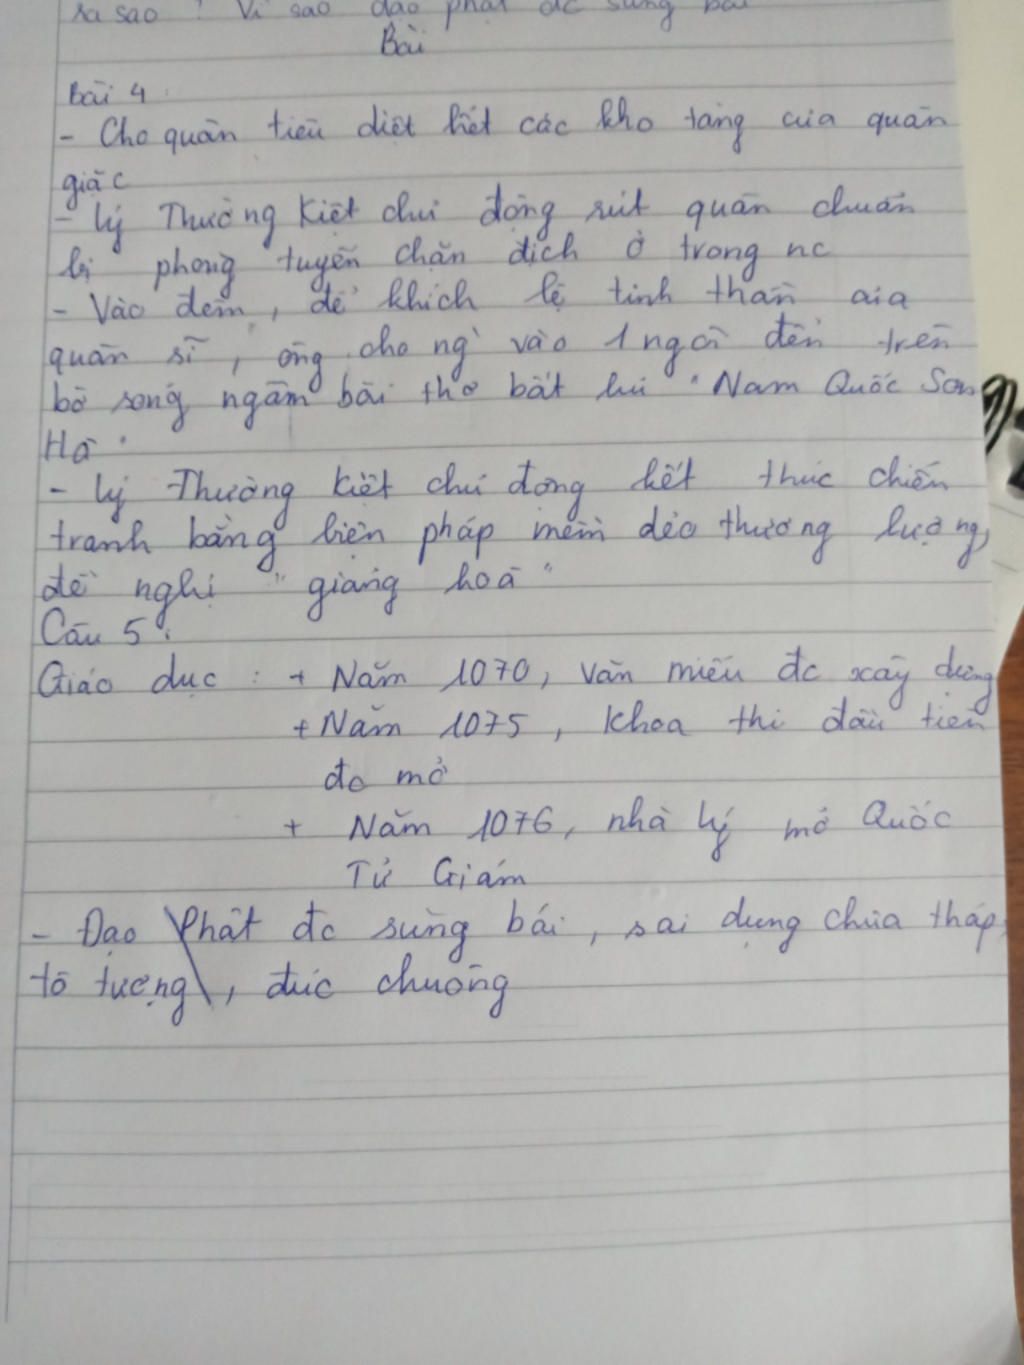 ra sao ? Vì sao đạo phật đc sùng bái
Bài
Bài 4
- Cho quân tiêu diệt hết các kho tàng của quân
giặc
- Lý Thường Kiệt chủ động rút quân chuẩn
bị phòng tuyến chặn địch ở trong nc
- Vào đêm, để khích lệ tinh thần của
quân sĩ, ông cho ng` vào 1 ngôi đền trên
bờ sông ngâm bài thơ bất hủ "Nam Quốc Sơn
Hà"
- Lý Thường Kiệt chủ động kết thúc chiến
tranh bằng biện pháp mềm dẻo thương lượng,
đề nghị "giảng hoà"
Câu 5:
Giáo dục : + Năm 1070, Văn miếu đc xây dựng
+ Năm 1075, khoa thi đầu tiên
đc mở
+ Năm 1076, nhà Lý mở Quốc
Tử Giám
- Đạo Phật đc sùng bái, sai dựng chùa tháp,
tô tượng, đúc chuông